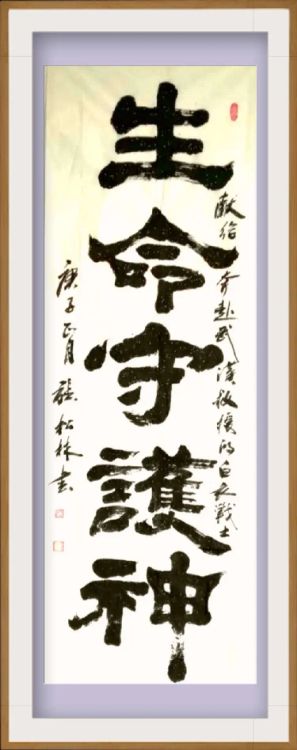 生命守護神
献给奔赴武漢救援的白衣戰士
庚子正月張松林書